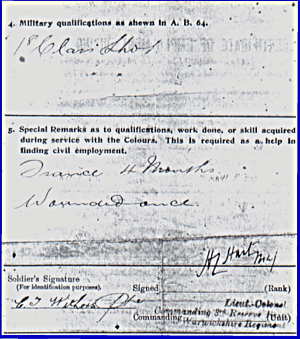 4. Military qualifications as shewn in A. B. 64.
1st Class Shot
5. Special Remarks as to qualifications, work done, or skill acquired
during service with the Colours. This is required as a help in
finding civil employment.
France 4 Months
Wounded once.
Soldier's Signature
(For identification purposes).
Signed
(Rank)
Lieut-Colonel
Commanding 3rd Reserve
Commanding
(Unit)
Warwickshire Regiment